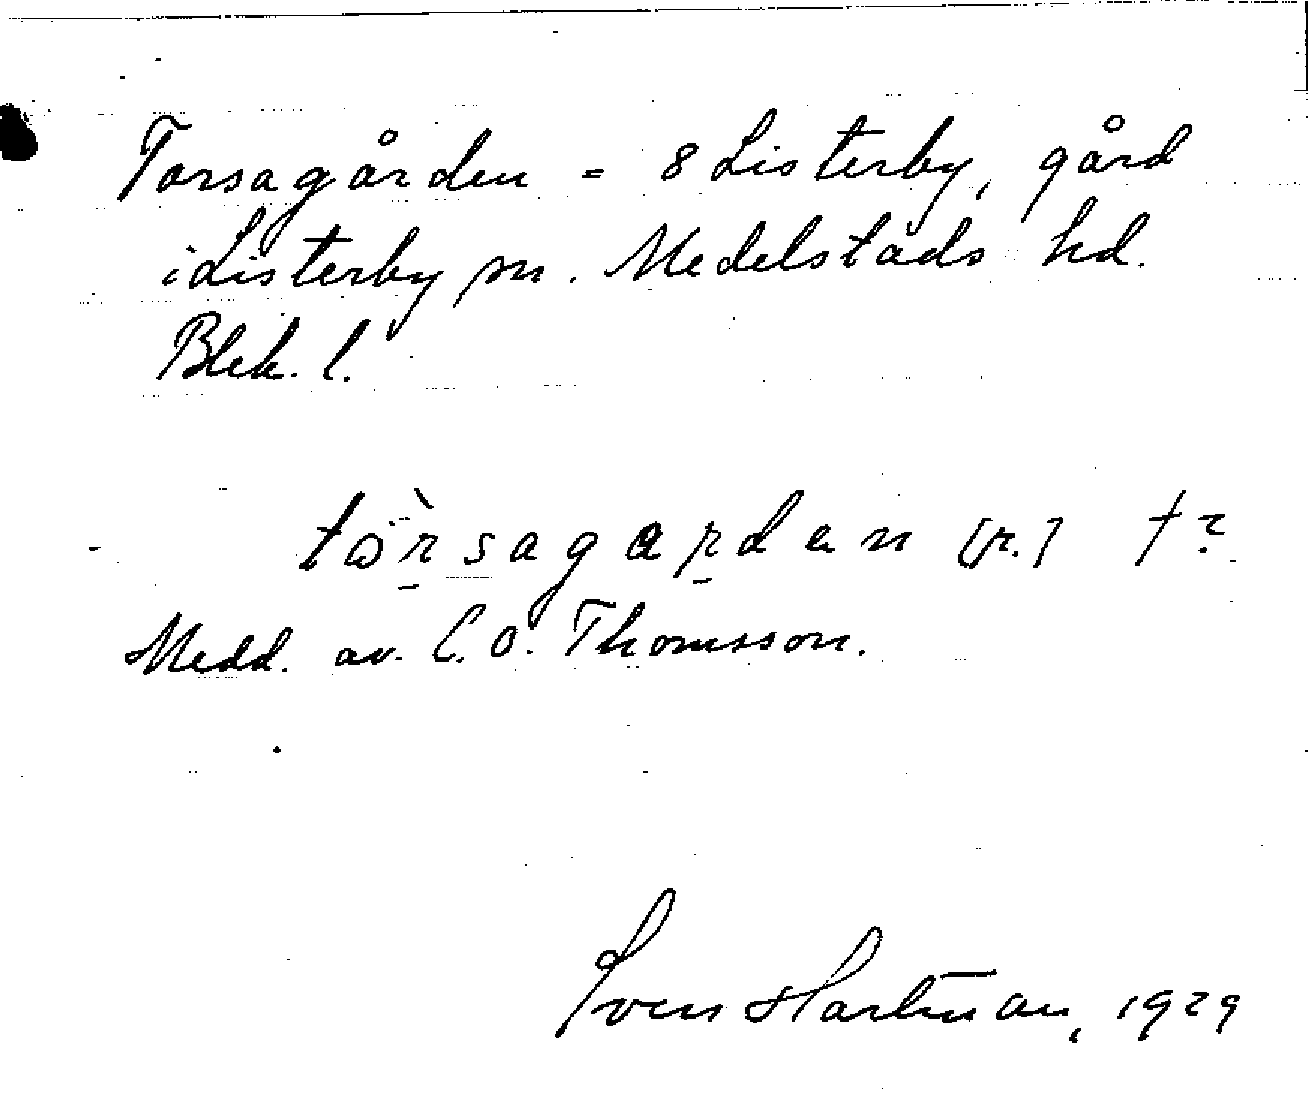 Torsagården = 8 Listerby, gård
i Listerby sn. Medelstads hd.
Blek. l.
tòrsagardan [r.] †?
Medd. av C. O. Thomsson.
Sven Hartman, 1929